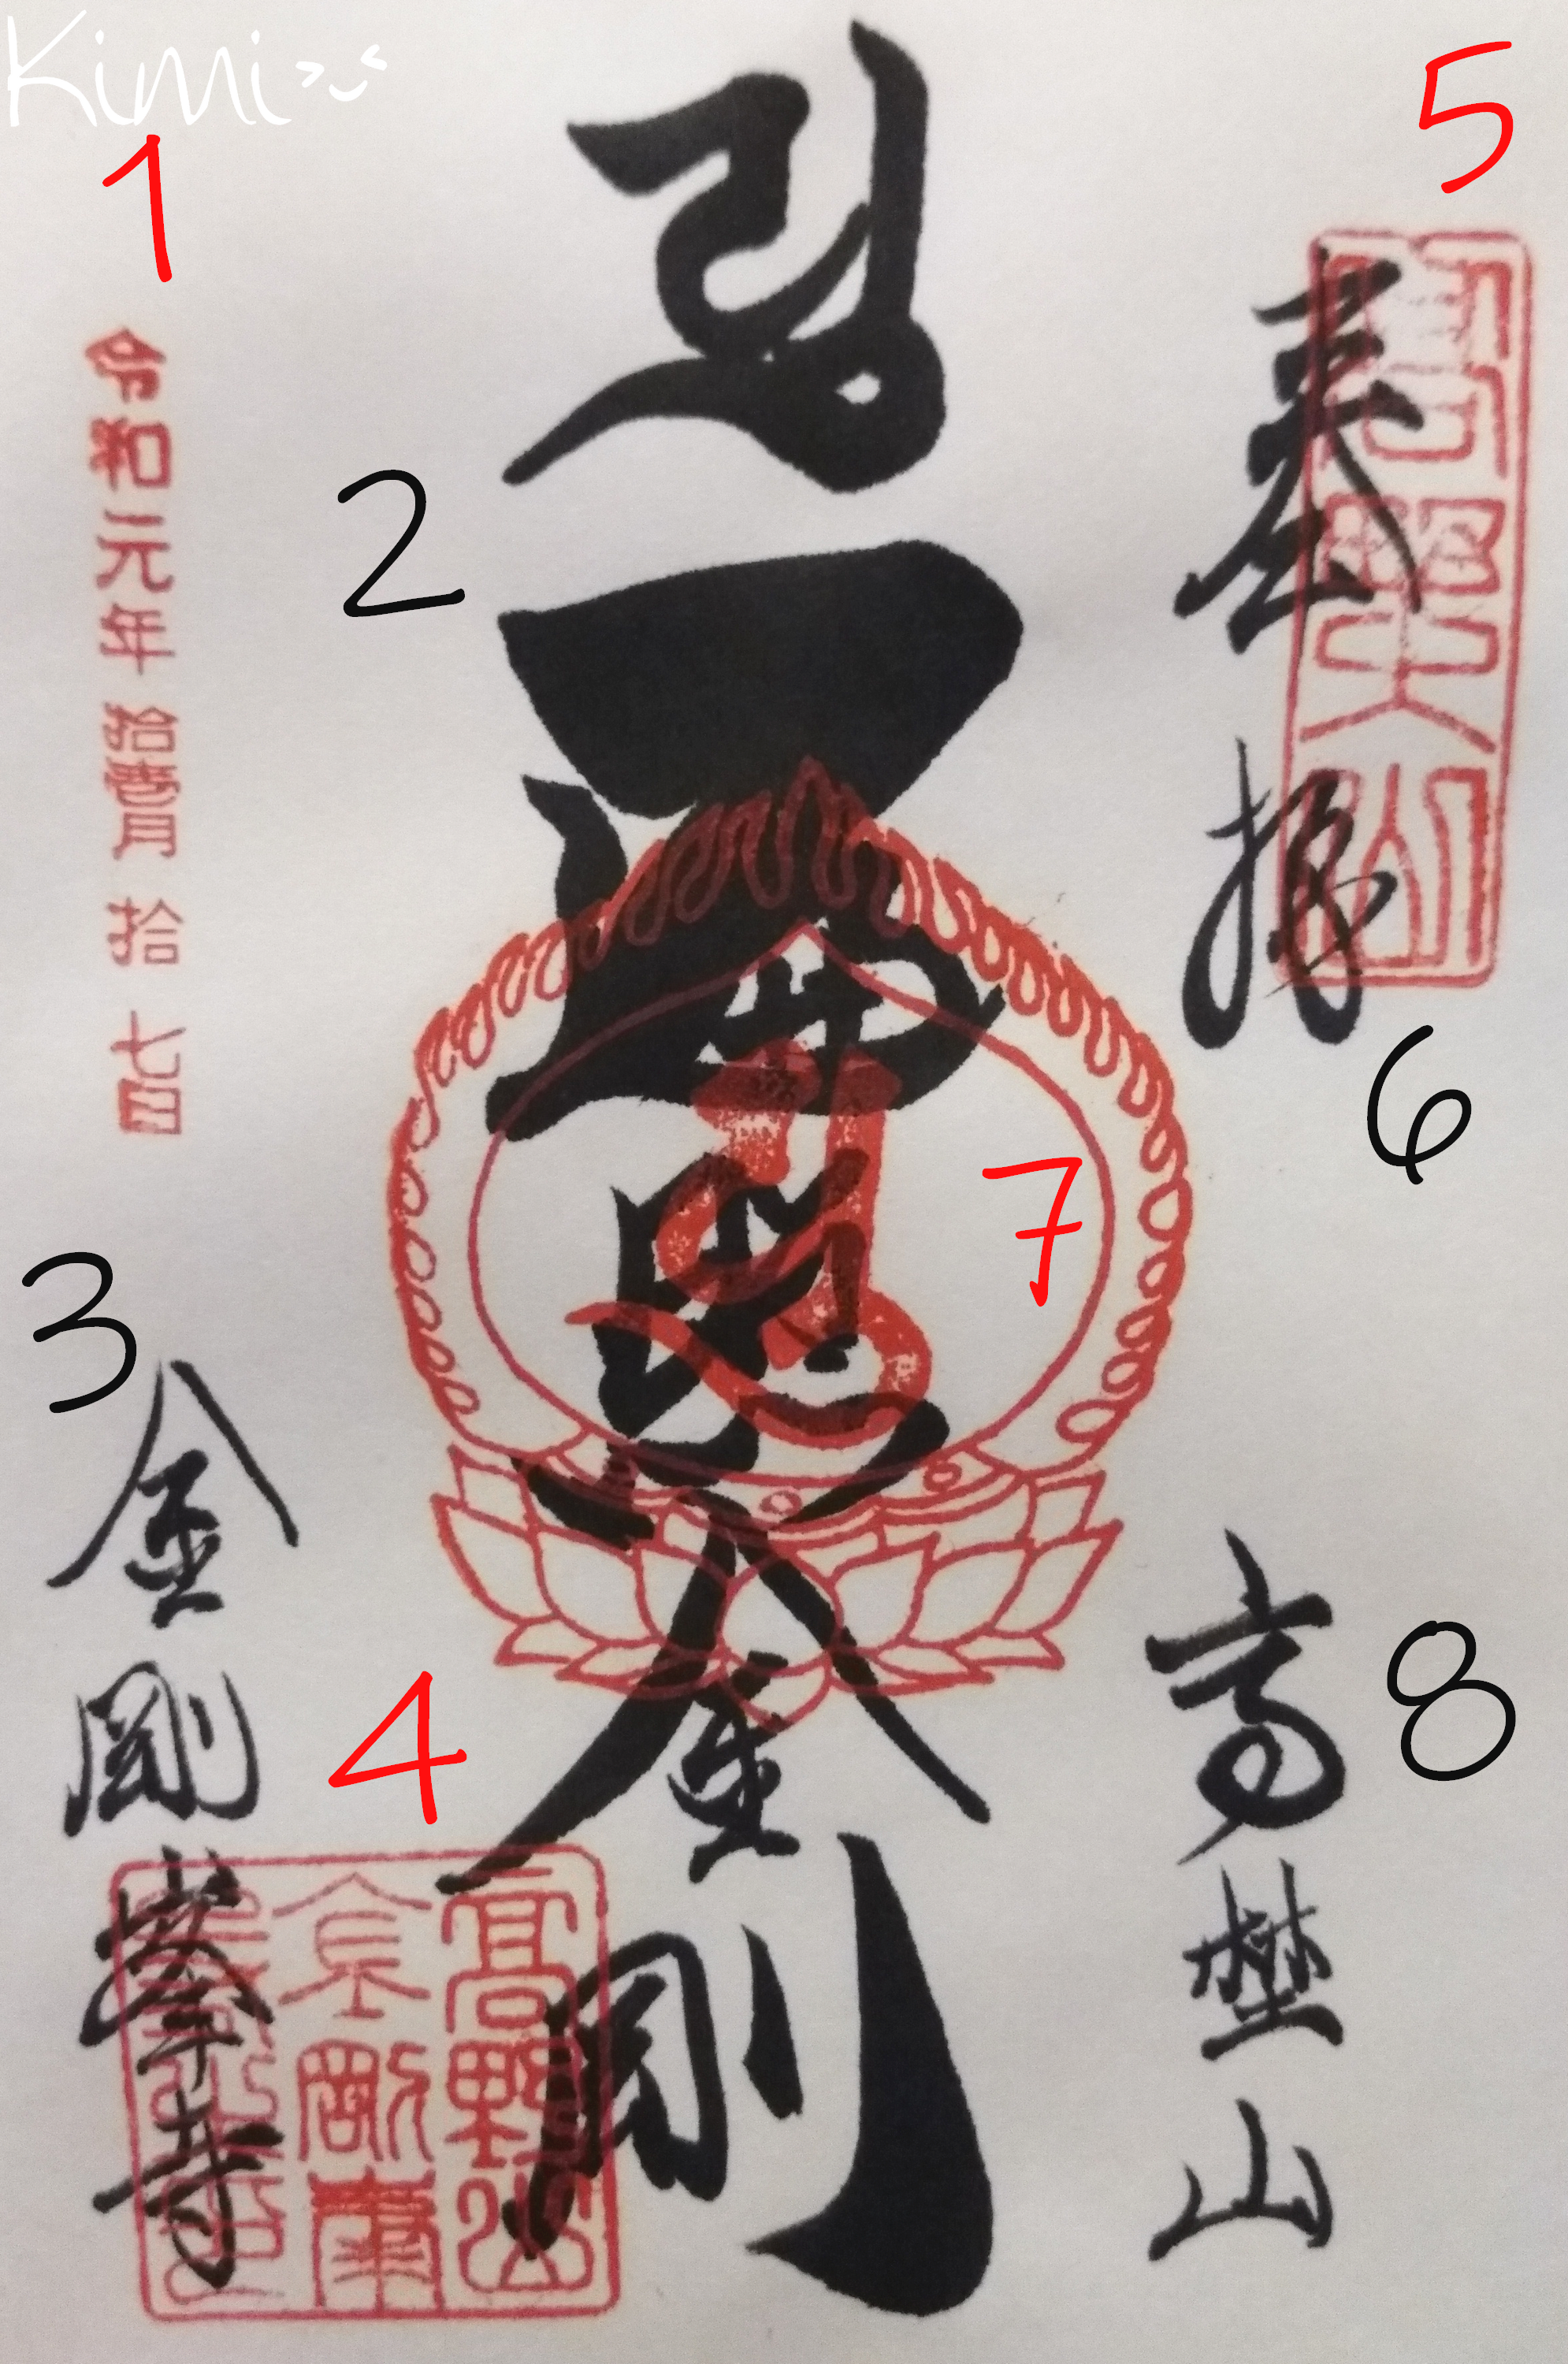 Kimi
5
奉拝
6
8
高埜山
2
遍照金剛
7
1
令和元年拾壹月拾七日
3
金剛峯寺
4
高野山
金剛峯